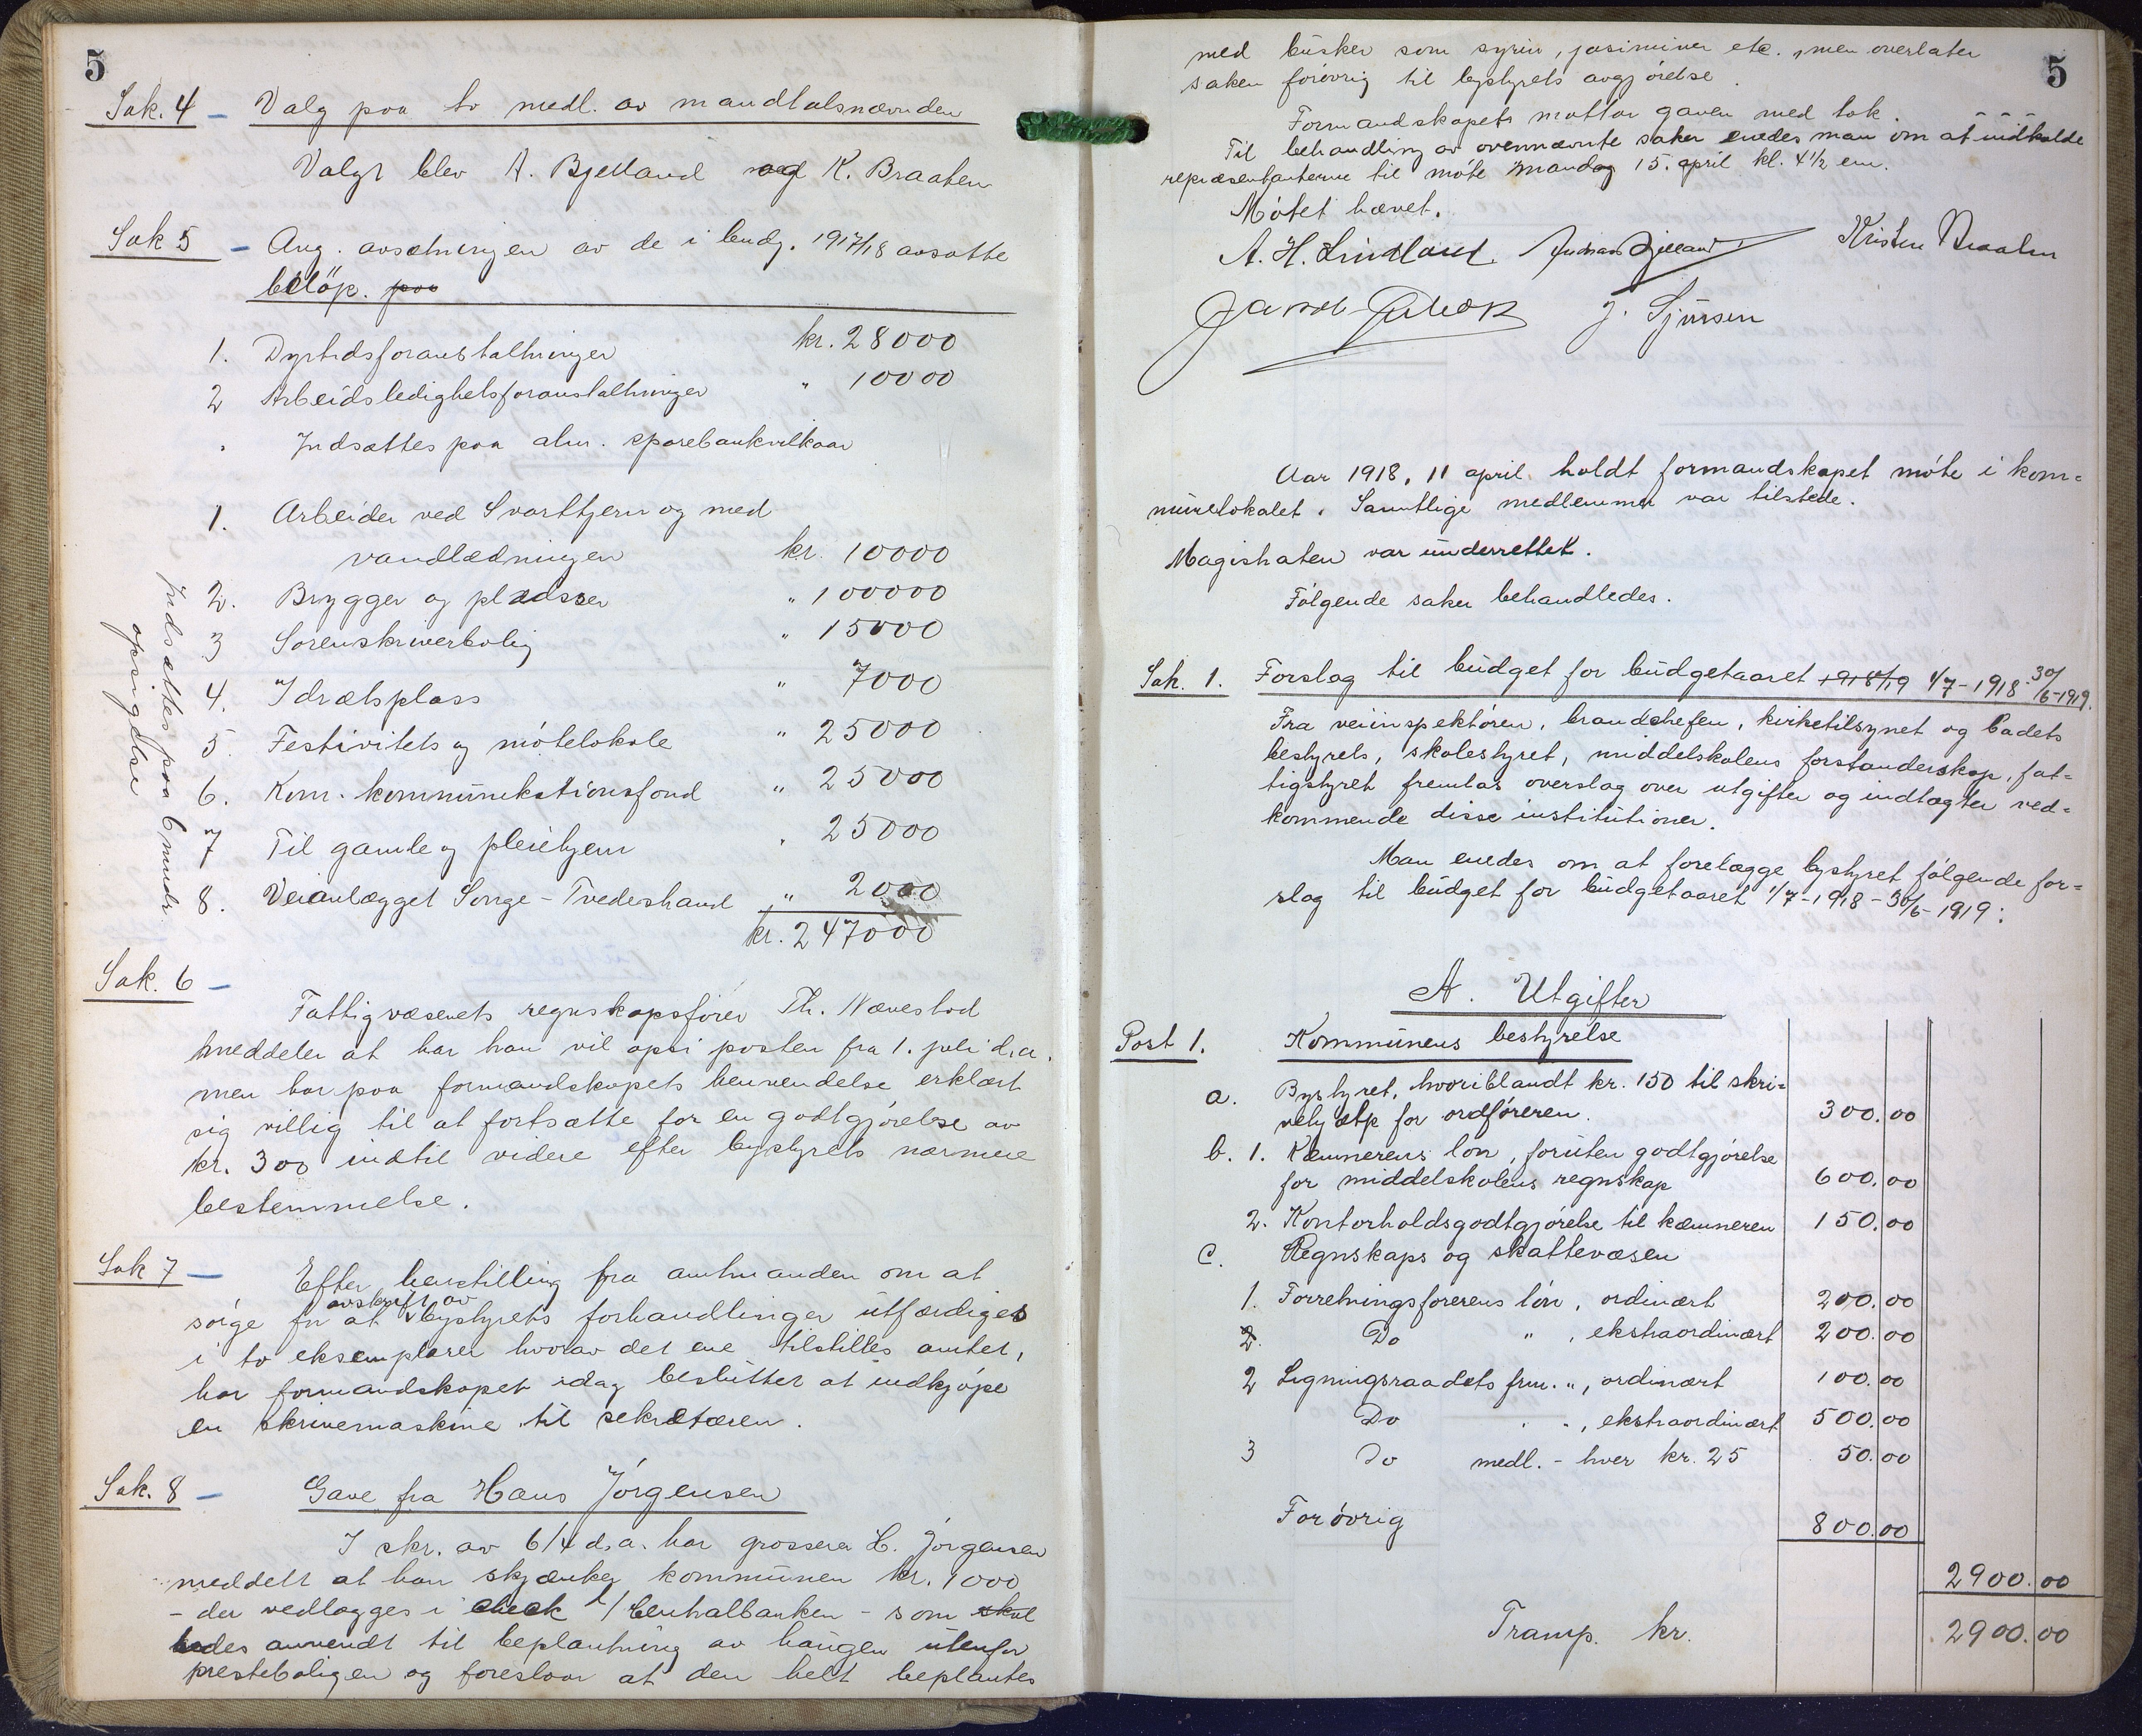 5
Sak. 4 – Valg paa to medl. av mandtalsnævnden
Valgt blev A. Bjelland og K. Braaten
Sak 5 – Ang. avsætningen av de i budg. 1917/18 avsatte
beløp. paa
1. Dyrtidsforanstaltninger kr. 28000
2 Arbeidsledighetsforanstaltninger " 10000
Indsættes paa alm. sparebankvilkaar
1. Arbeider ved Svarttjern og med
vandledningen kr. 10000
2. Brygger og pladsser " 100000
3 Sorenskriverbolig " 15000
4. Idrætsplass " 7000
5. Festivitets og møtelokale " 25000
6. Kom. kommunikationsfond " 25000
7 Til gamle og pleiehjem " 25000
8. Veianlægget Songe – Tvedestrand " 2000
kr. 247000
Indsættes paa 6 mndr.
opsigelse
Sak. 6 –
Fattigvæsenets regnskapsfører Th. Nævestad
meddeler at har han vil opsi posten fra 1. juli d.a.
men har paa formandskapets henvendelse erklært
sig villig til at fortsætte for en godtgjørelse av
kr. 300 indtil videre efter bystyrets nærmere
bestemmelse.
Sak 7 – Efter henstilling fra amtmanden om at
avskrift av
sørge for at bystyrets forhandlinger utfærdiges
i to eksemplarer hvorav det ene tilstilles amtet,
har formandskapet idag besluttet at indkjøpe
en skrivemaskine til sekretæren.
Sak. 8 – Gave fra Hans Jørgensen
I skr. av 6/4 d.a. har grosserer H. Jørgensen
meddelt at han skjænker kommunen kr. 1000
– der vedlægges i check / Centralbanken – som skal
bedes anvendt til beplantning av haugen utenfor
presteboligen og foreslaar at den helt beplantes
5
med busker som syrin, jasiminer etc., men overlater
saken forøvrig til bystyrets avgjørelse.
Formandskapets mottar gaven med tak.
Til behandling av ovennævnte saker enedes man om at indkalde
repræsentanterne til møte mandag 15. april kl. 4 1/2 em.
Møtet hævet.
A. H. Lindland. Andreas Bjelland Kristen Braaten
J. Sjursen
Aar 1918, 11 april holdt formandskapet møte i kom=
munelokalet. Samtlige medlemmer var tilstede.
Magistraten var underrettet.
Følgende saker behandledes.
Sak. 1. Forslag til budget for budgetaaret 1918/19 1/7-1918 – 30/6-1919.
Fra veiinspektøren, brandchefen, kirketilsynet og badets
bestyrels, skolestyret, middelskolens forstanderskap, fat=
tigstyret fremlas overslag over utgifter og indtægter ved=
kommende disse institutioner.
Man enedes om at forelægge bystyret følgende for=
slag til budget for budgetaaret 1/7-1918 – 30/6-1919:
A. Utgifter
Post 1. Kommunens bestyrelse
a. Bystyret, hvoriblandt kr. 150 til skri=
vehjælp for ordføreren. 300.00
b. 1. Kæmnerens løn, foruten godtgjørelse
for middelskolens regnskap 600.00
2. Kontorholdsgodtgjørelse til kæmneren 150.00
c. Regnskaps og skattevæsen
1. Forretningsførerens løn, ordinært 200.00
2. Do " , ekstraordinært 200.00
2 Ligningsraadets frm. ", ordinært 100.00
Do " ", ekstraordinært 500.00
3 Do medl. – hver kr. 25 50.00
Forøvrig 800.00
2900.00
Transp. kr. 2900.00